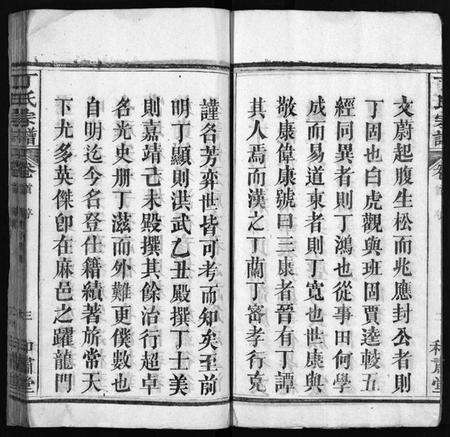 文蔚起腹生松而兆應封公者則
丁固也白虎觀與班固賈逵較五
經同異者則丁鴻也從事田何學
成而易道東者則丁寬也世康與
敬康偉康號曰三康者晉有丁譚
其人焉而漢之丁蘭丁密孝行克
謹名芳弈世皆可考而知矣至前
明丁顯則洪武乙丑殿撰丁士美
則嘉靖己未殿撰其餘治行超卓
名光史册丁滋而外難更僕數也
自明迄今名登仕籍績著旂常天
下尤多英傑卽在麻邑之躍龍門
丁氏宗譜
卷首